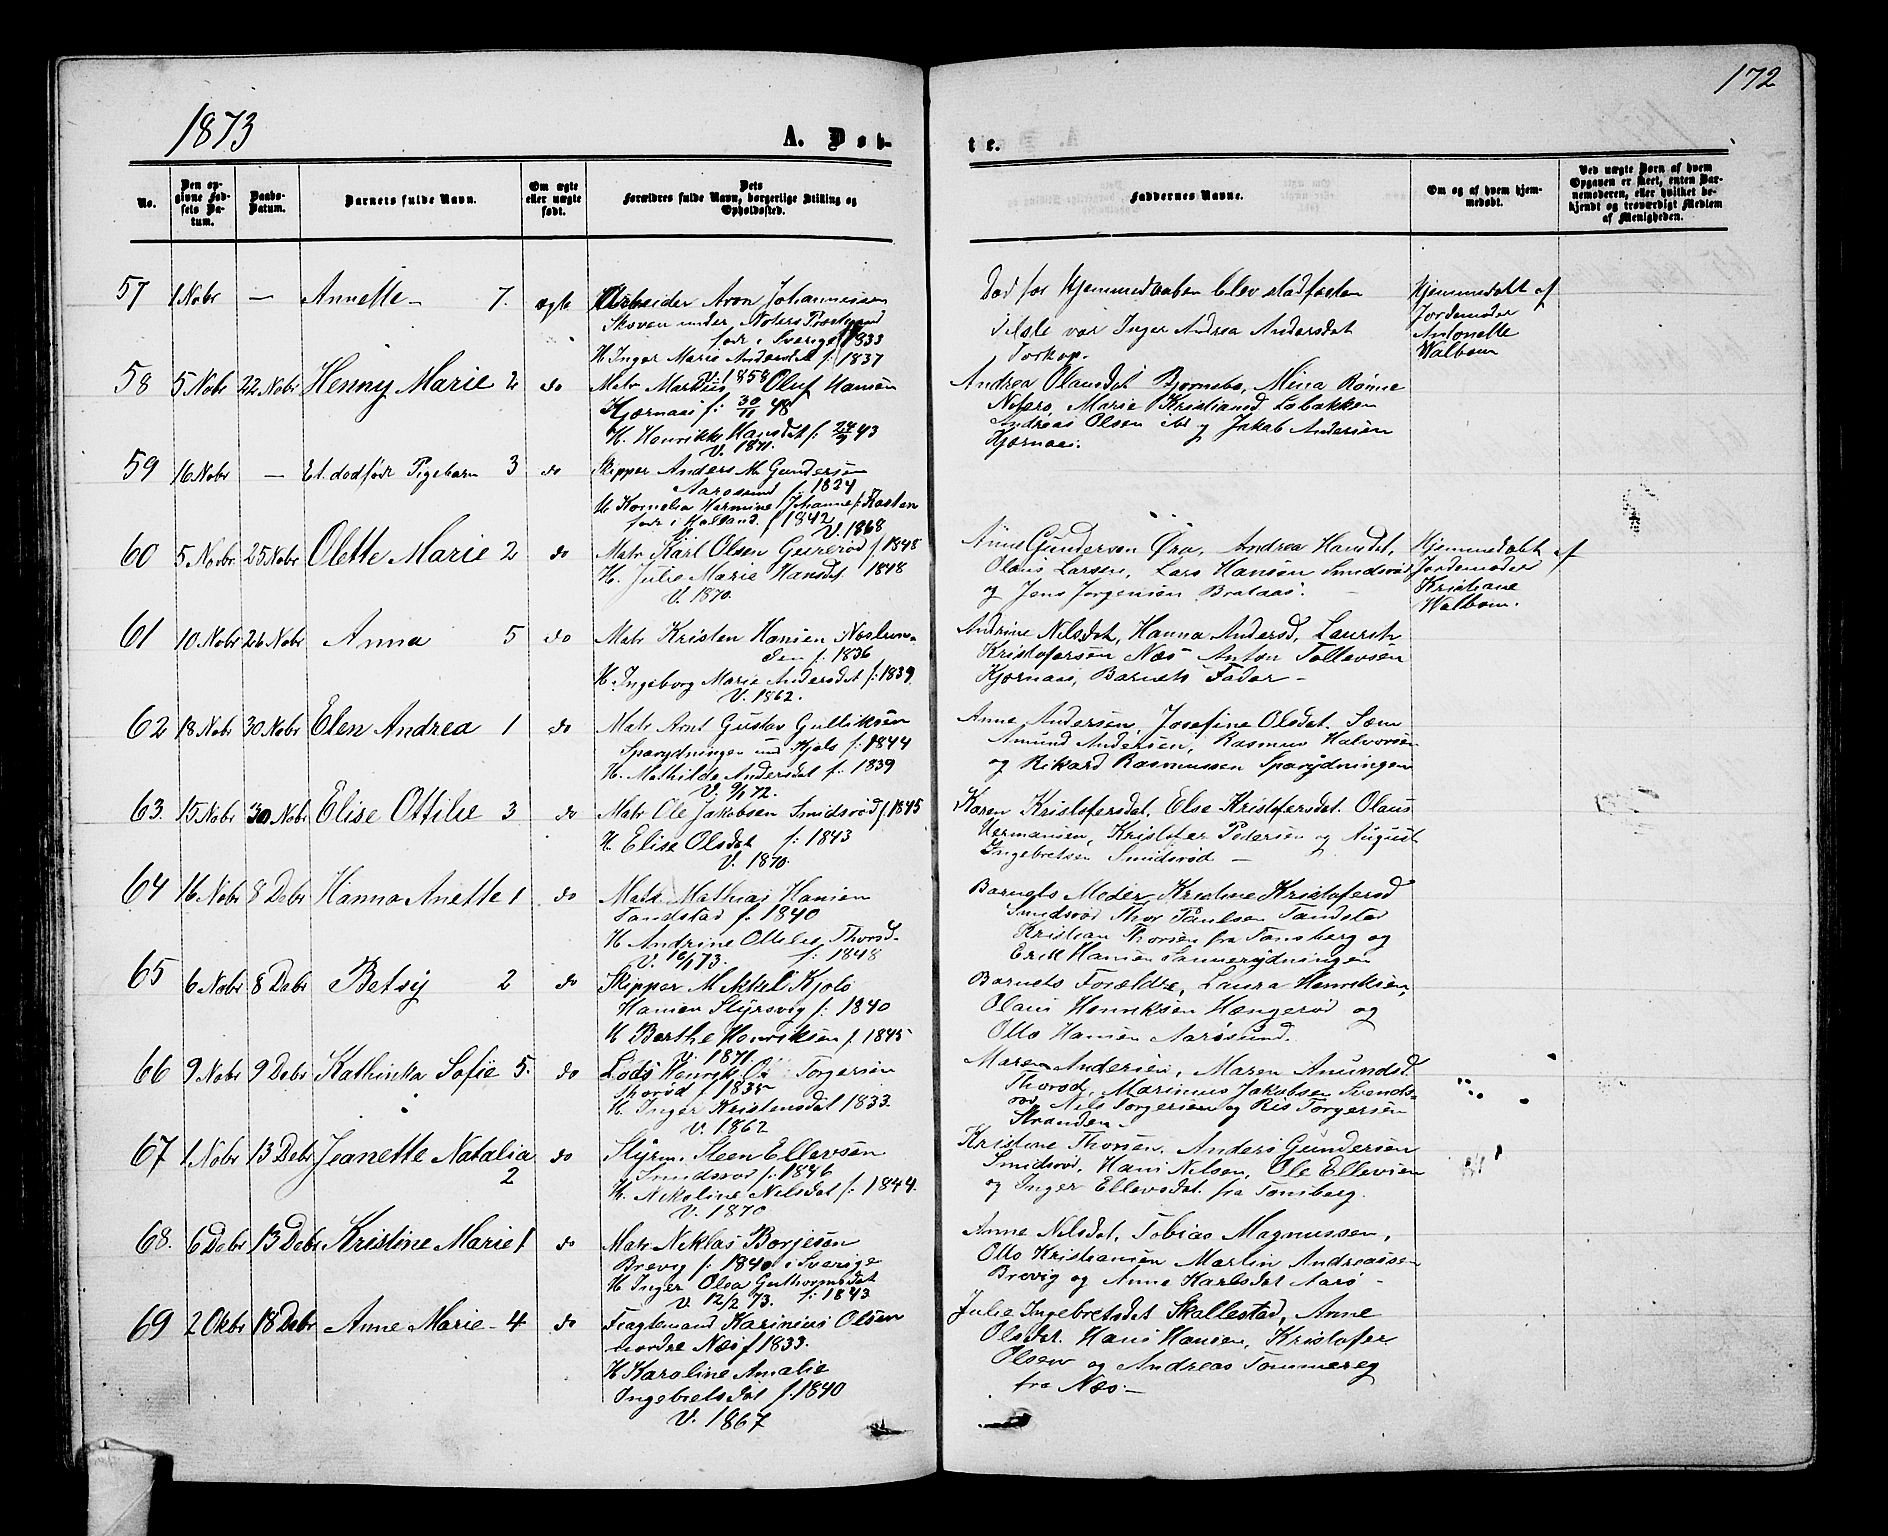 172
1873
A. Døb-
te.
No.
Den opgivne Fødsels Datum.
Daabs-Datum.
Barnets fulde Navn.
Om ægte eller uægte født.
Dets Forældres fulde Navn, borgerlige Stilling og Opholdssted.
Faddernes Navne.
Om og af hvem hjemmedøbt.
Ved uægte Børn af hvem Opgaven er skeet, enten Barnemoderen, eller hvilket bekjendt og troværdigt Medlem af Menigheden.
57 1 Nobr — Annette - 7. ægte Arbeider Aron Johannessen
Skoven under Nøterø Præstegaard
født i Sverige 1833
H. Inger Marie Andersdat f: 1837
V. 1858
Død før Hjemmedaaben blev stadfæstet
Inger Andrea Andersdat
Torkop.
Hjemmedøbt af
Jordemoder
Antonette
Walbom
58 5 Nobr 22 Nobr Henny Marie 2 do Matr Martin Oluf Hansen
Kjørnaas f: 30/11 48
H. Henrikke Hansdat f: 24/9 43
V. 1871.
Andrea Olausdat Bjørnebo, Mina Rønne
Nøterø, Marie Kristiansd Løbakken
Andreas Olsen ibd og Jakob Andersen
Kjørnaas.
59 16 Nobr — Et dødfødt Pigebarn 3 do Skipper Anders M. Gundersen
Aarøsund f. 1824
H. Kornelia Hermine Johanne f: Kasten
født i Holland f 1842
V. 1868
60 5 Nobr 25 Nobr Olette Marie 2 do Matr Karl Olsen Guirerød f 1848
H. Julie Marie Hansdat 1848
V. 1870.
Anne Gundersen Øra, Andrea Hansdat,
Olaus Larsen, Lars Hansen Smidsrød
og Jens Jørgensen Brataas.
Hjemmedøbt af
Jordemoder
Kristiane
Walbom.
61 10 Nobr 26 Nobr Anna 5 do Matr Kristen Hansen Næslun-
den f: 1836
H. Ingeborg Marie Andersdat f: 1839.
V. 1862.
Andrine Nilsdat, Hanna Andersd, Laurits
Kristofersen Næs Anton Tollevsen
Kjørnaas, Barnets Fader -
62 18 Nobr 30 Nobr Elen Andrea 1 do Matr Arnt Gustav Gulliksen
Sparydningen und Hjels f: 1844
H. Mathilde Andersdat f: 1839
V. 9/1 72.
Anne Andersen, Josefine Olsdat. Sem
Amund Andersen, Rasmus Halvorsen
og Rikard Rasmussen Sparydningen
63. 15 Nobr 30 Nobr Elise Ottilie 3 do Matr Ole Jakobsen Smidsrød f 1845
H. Elise Olsdat f: 1843
V. 1870.
Karen Kristofersdat, Else Kristofersdat. Olaus
Hermansen, Kristofer Pedersen og August
Ingebretsen Smidsrød —
64 16 Nobr 8 Debr Hanna Anette 1 do Matr Mathias Hansen
Tandstad f. 1840
H Andrine Ottilie Thorsd.
V. 16/1 73. f: 1848
Barnets Moder, Kristine Kristofersd
Smidsrød Thor Paulsen Tandstad
Kristian Thorsen fra Tønsberg og
Erik Hansen Sannerydningen
65 6 Nobr 8 Debr Betsy 2 do Skipper Mikkel Kjølø
Hansen Styrsvig f: 1840
H Berthe Henriksen f. 1845
V. 1871.
Barnets Forældre, Laura Henriksen,
Olaus Henriksen Hængerød og
Otto Hansen Aarøsund.
66 9 Nobr 9 Debr Kathinka Sofie 5. do Lods Henrik Torgersen
Thorød f 1835
H Inger Kristensdat 1833.
V. 1862
Maren Andersen, Maren Amundsd.
Thorød, Marinus Jakobsen Svends-
rød, Nils Torgersen og Ris Torgersen
Stranden -
67 1 Nobr 13 Debr Jeanette Natalia 2 do Styrm. Steen Ellevsen
Smidsrød f: 1846
H. Nikoline Nilsdat f: 1844.
V. 1870
Kristine Thorsen, Anders Gundersen
Smidsrød, Hans Nilsen, Ole Ellevsen
og Inger Ellevsdat. fra Tønsberg.
68. 6 Debr 13 Debr Kristine Marie 1 do Matr Niklas Borjesen
Brevig f: 1840 i Sverige
H Inger Olea Guthormsdat
V. 12/2 73. f: 1843
Anne Nilsdat, Tobias Magnussen,
Otto Kristiansen Martin Andreasse-
Brevig og Anne Karlsdat Aarø -
69 2 Oktbr 18 Debr Anne Marie - 4 do Fragtemand Karinius Olsen
nordre Næs f 1833.
H Karoline Amalie
Ingebretsdat f. 1840
V. 1867
Julie Ingebretsdat Skallestad, Anne
Olsdat. Hans Hansen, Kristofer
Olsen og Andreas Tommereg
fra Næs -